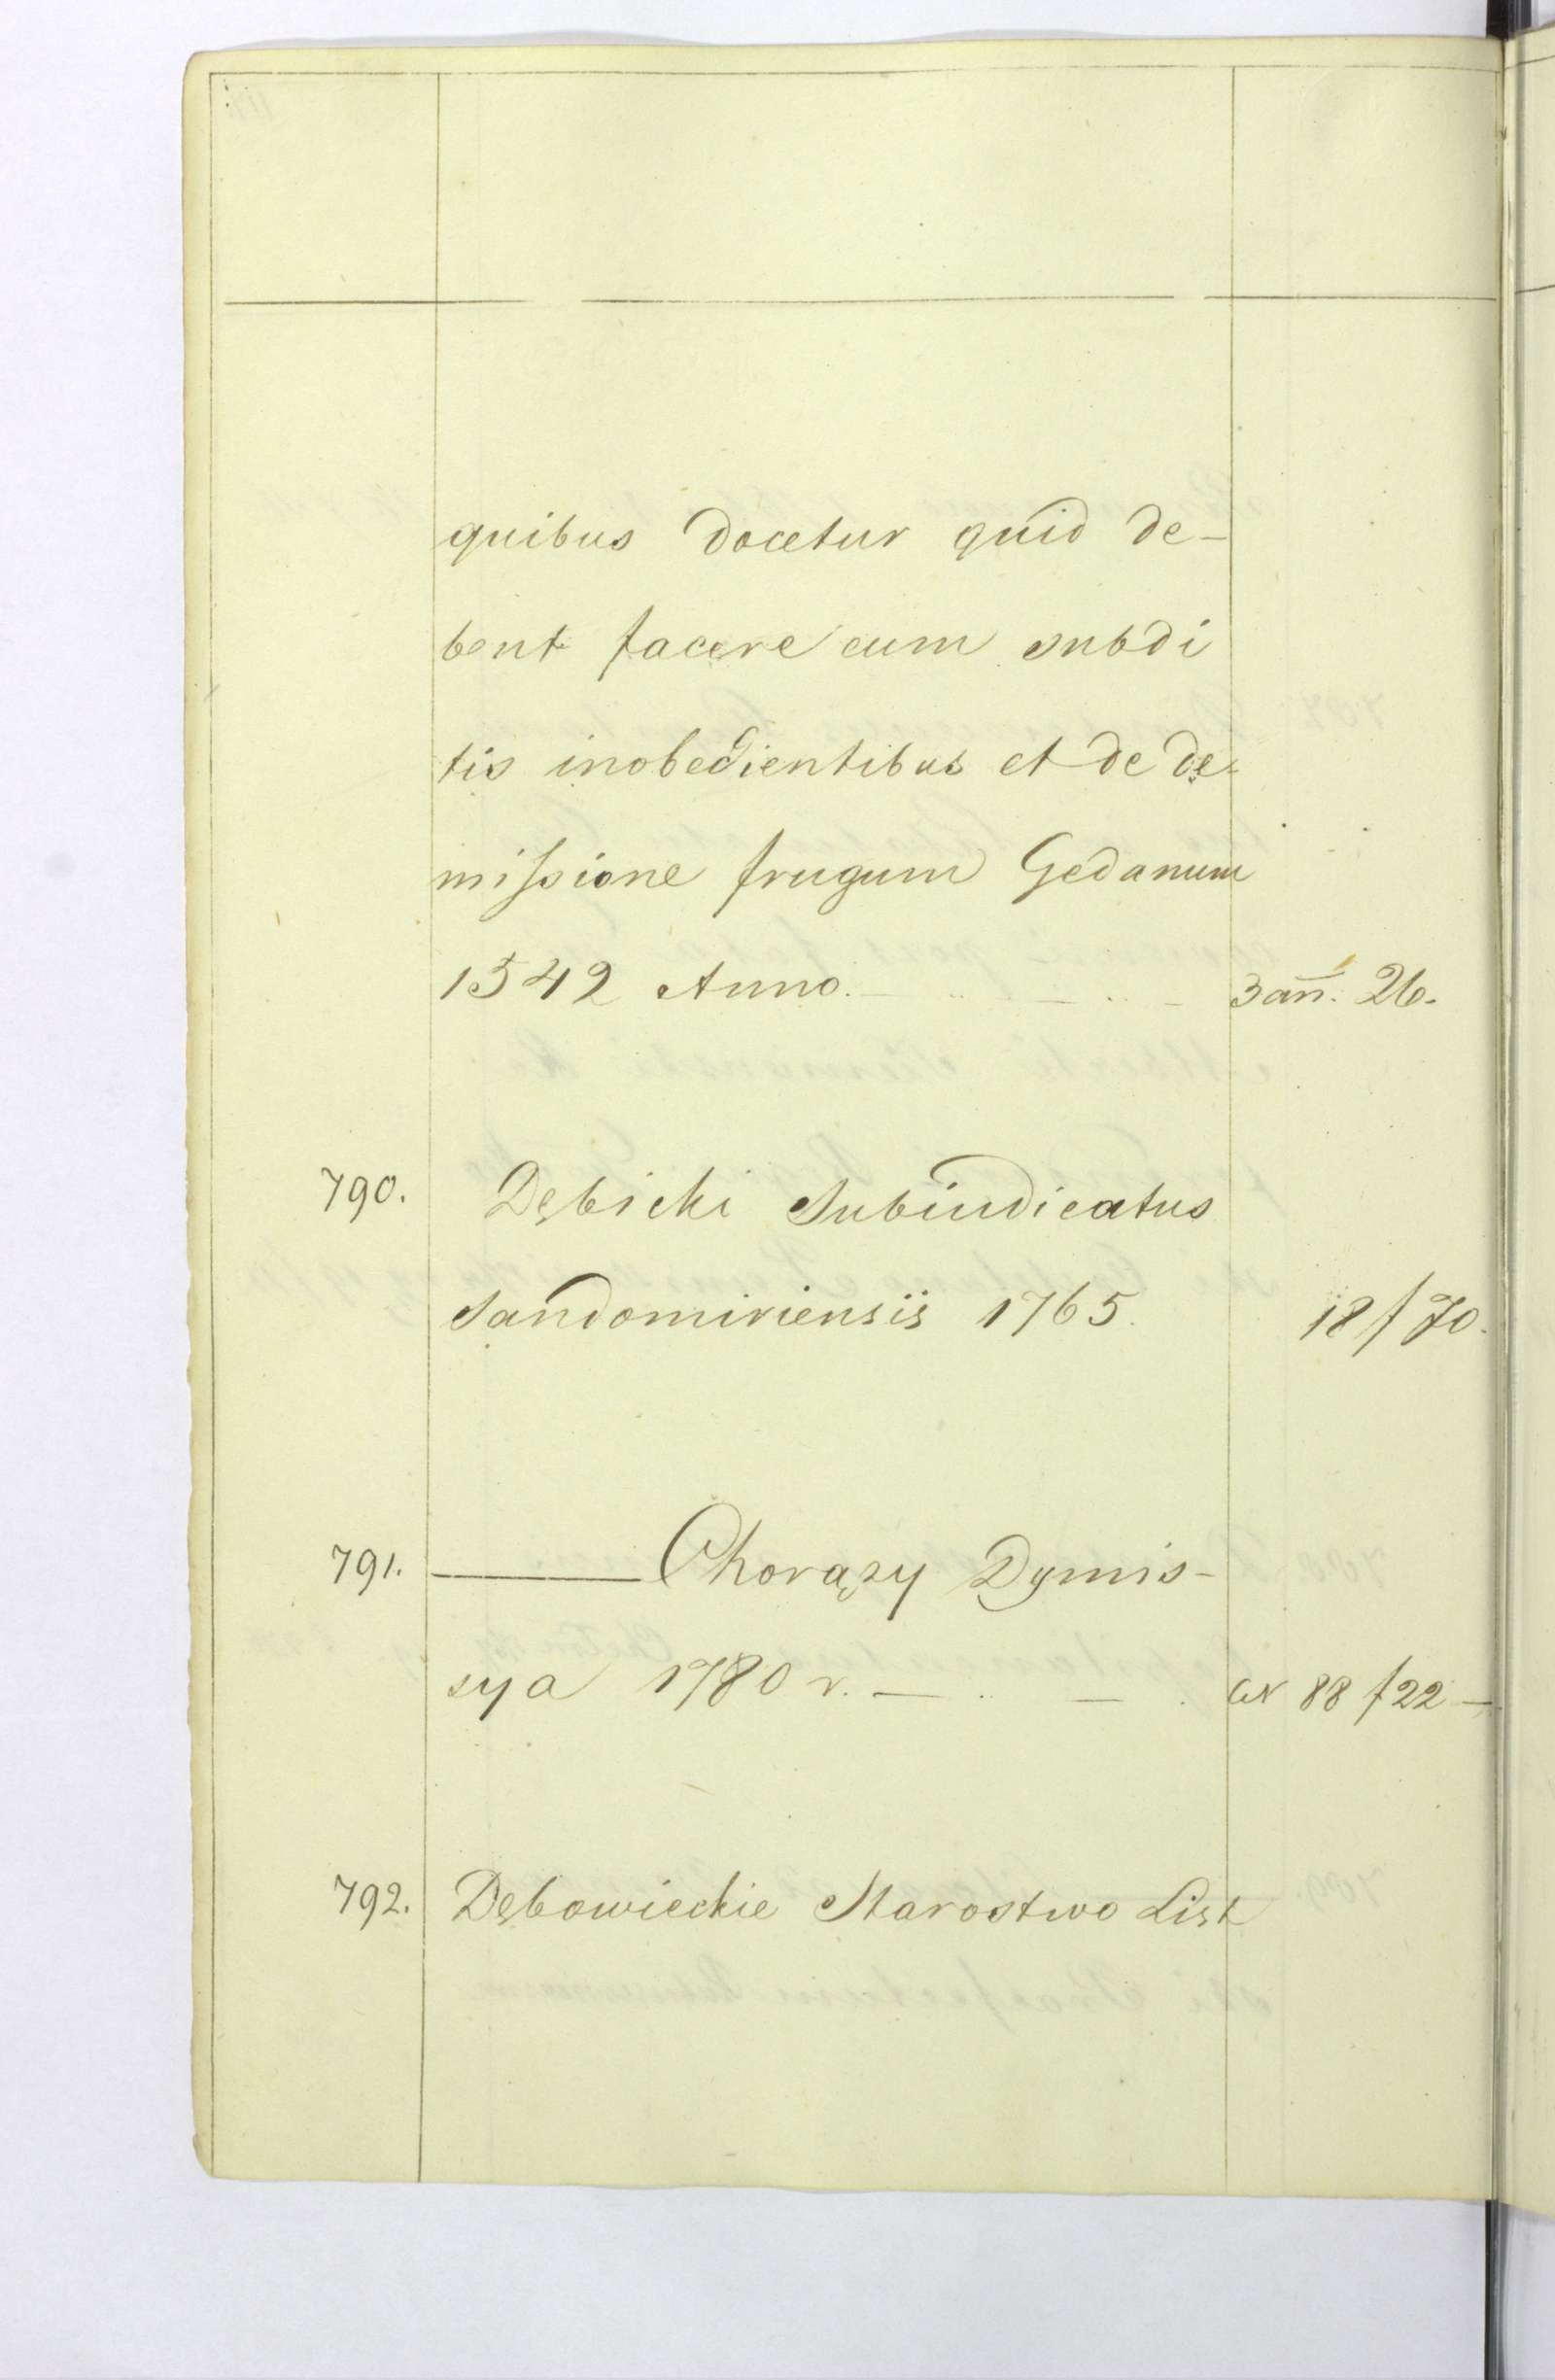 quibus docetur quid de-
bent facere cum subdi
tis inobedientibus et de de-
missione frugum Gedanum
1542 Anno. 3 an̄. 26.
790. Dębicki Subiudicatus
Sandomiriensis 1765. 18 f 70.
791. ——— Chorązy Dymis-
sya 1780 r. — .. — . 88 f 22 —
792. Dębowieckie Starostwo List